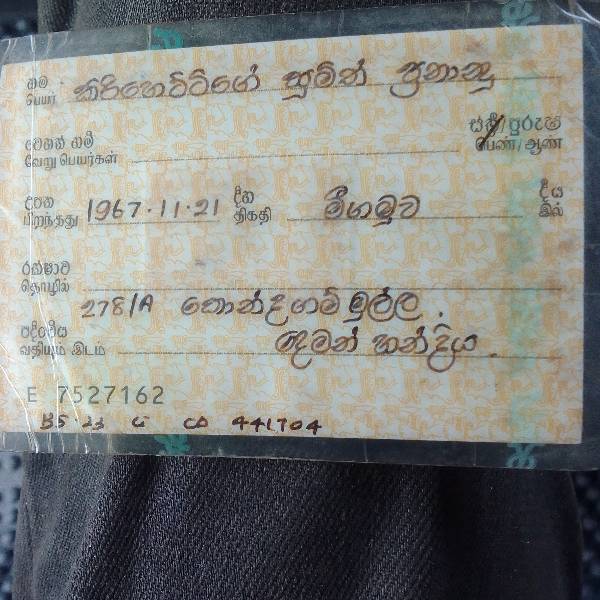 නම කිරිහෙට්ටිගේ සුමිත් ප්‍රනාන්දු
பெயர்
වෙනත් නම් ස්ත්‍රී/පුරුෂ
வேறு பெயர்கள் பெண்/ஆண்
උපන 1967.11.21 දින මීගමුව දීය
பிறந்தது திகதி இல்
රක්ෂාව
தொழில்
278/A කොන්දගම්මුල්ල.
පදිංචිය දෙමන් හන්දිය.
வதியும் இடம்
E 7527162
441704